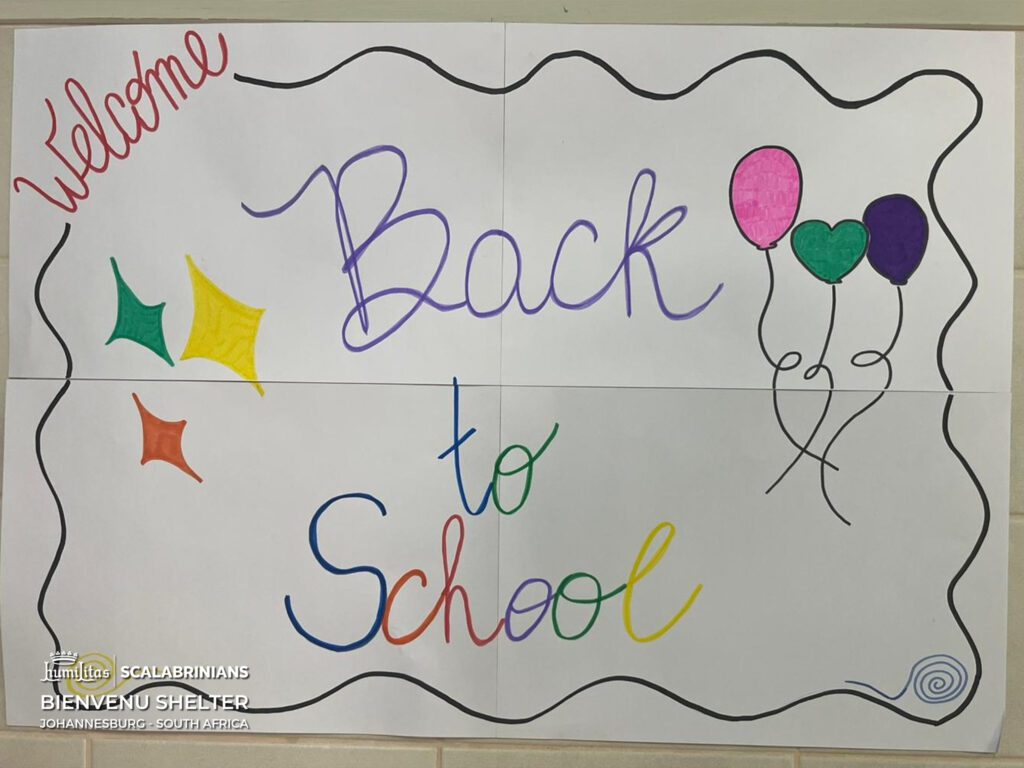 Welcome
Back
to
School
humilitas SCALABRINIANS
BIENVENU SHELTER
JOHANNESBURG - SOUTH AFRICA